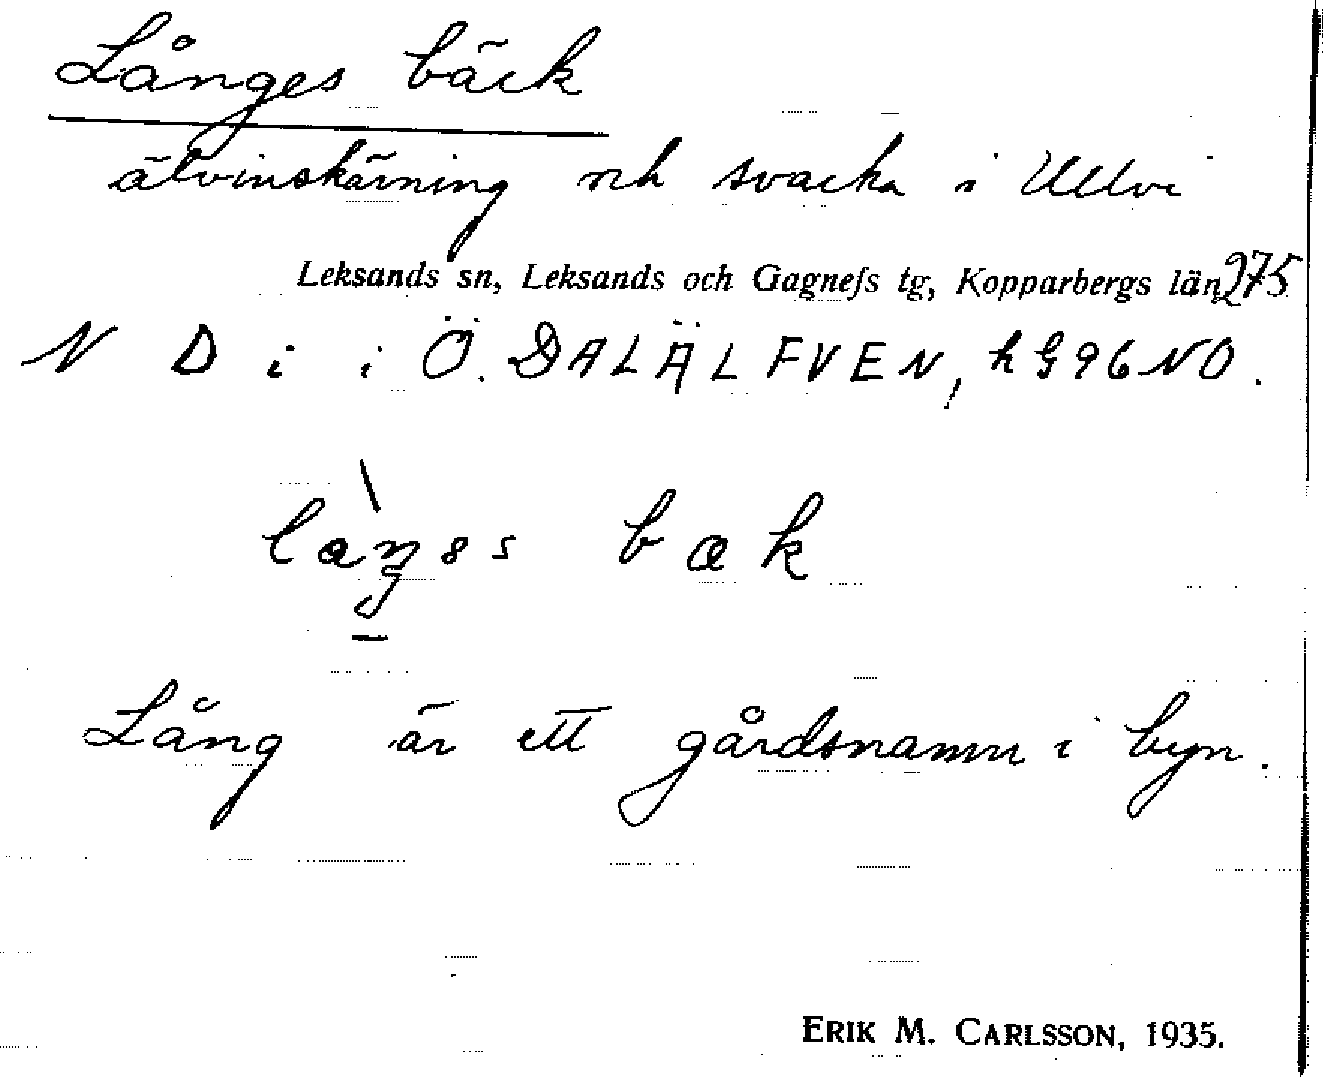 Långes bäck
älvinskärning och svacka i Ullvi
Leksands sn, Leksands och Gagnefs tg, Kopparbergs län, 275
N D i i Ö. DALÄLFVEN, h G 96 NO.
Lång är ett gårdsnamn i byn.
ERIK M. CARLSSON, 1935.